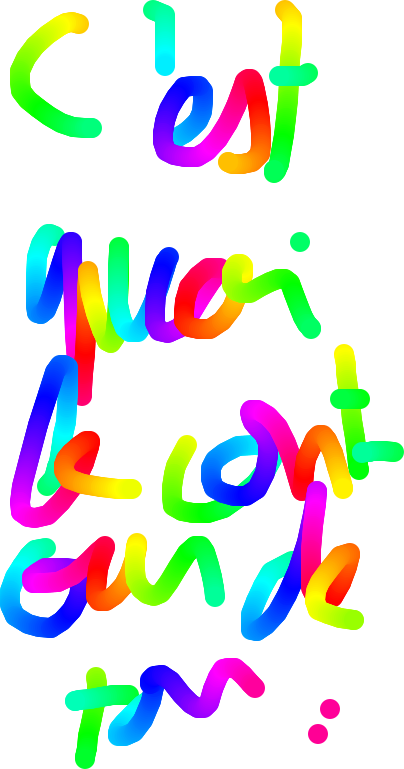 C'est
quoi
le cont
our de
tm :